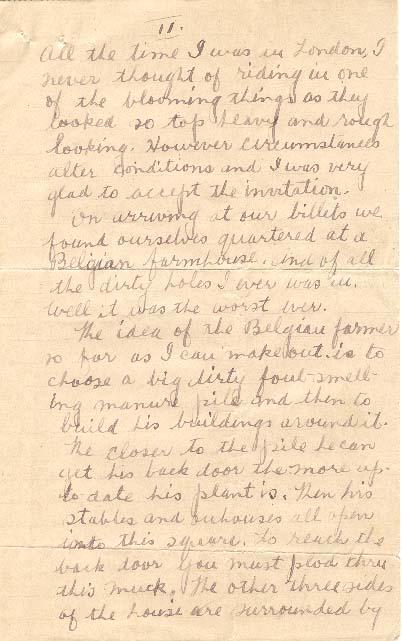 11.
All the time I was in London, I
never thought of riding in one
of the blooming things as they
looked so top heavy and rough
looking. However circumstances
alter conditions and I was very
glad to accept the invitation.
On arriving at our billets we
found ourselves quartered at a
Belgian farmhouse. And of all
the dirty holes I ever was in.
Well it was the worst ever.
The idea of the Belgian farmer
so far as I can make out is to
choose a big dirty foul-smell-
ing manure pile and then to
build his buildings around it.
The closer to the pile he can
get his back door the more up-
to-date his plant is. Then his
stables and outhouses all open
into this square. To reach the
back door you must plod thru
this muck. The other three sides
of the house are surrounded by